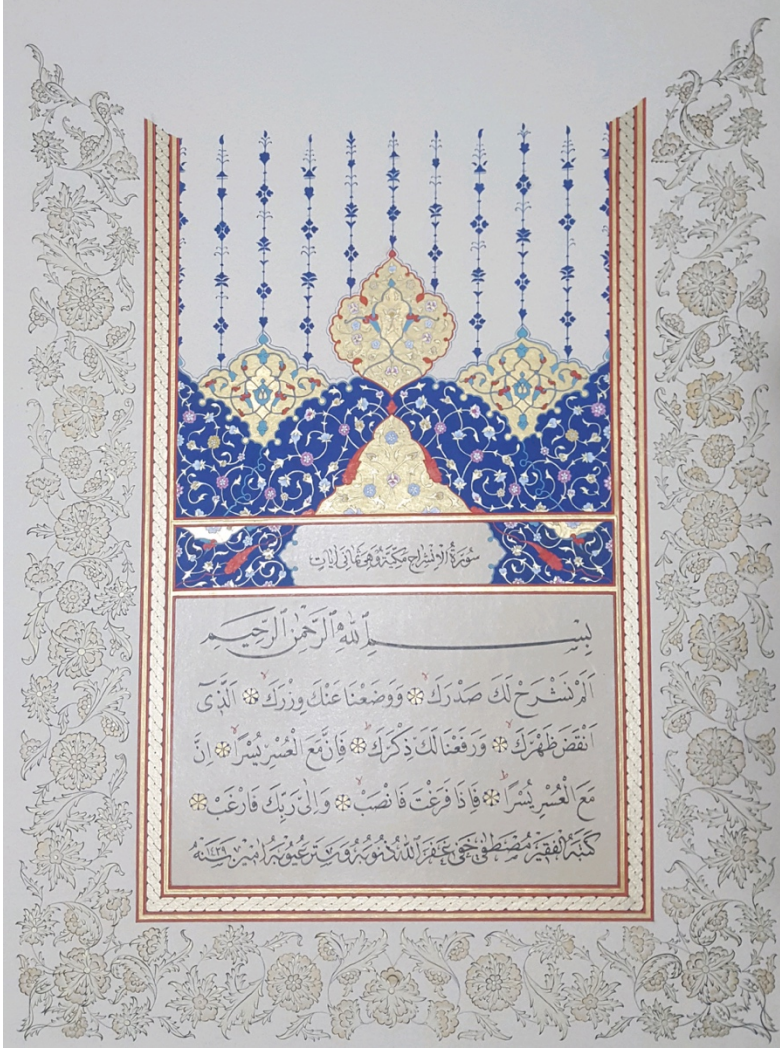 سُورَةُ الْاِنْشِرَاحِ مَكِّيَّةٌ وَهِيَ ثَمَانِي اٰيَاتٍ
بِسْمِ اللّٰهِ الرَّحْمٰنِ الرَّحِيمِ
اَلَمْ نَشْرَحْ لَكَ صَدْرَكَ ۙ وَوَضَعْنَا عَنْكَ وِزْرَكَ ۙ اَلَّذِىٓ
اَنْقَضَ ظَهْرَكَ ۙ وَرَفَعْنَا لَكَ ذِكْرَكَ ۜ فَاِنَّ مَعَ الْعُسْرِ يُسْرًا ۙ اِنَّ
مَعَ الْعُسْرِ يُسْرًا ۜ فَاِذَا فَرَغْتَ فَانْصَبْ ۙ وَاِلٰى رَبِّكَ فَارْغَبْ
كَتَبَهُ الْفَقِيرُ مُصْطَفٰى غَفَرَ اللّٰهُ ذُنُوبَهُ وَسَتَرَ عُيُوبَهُ اٰمِين سَنَة ١٤٣٩